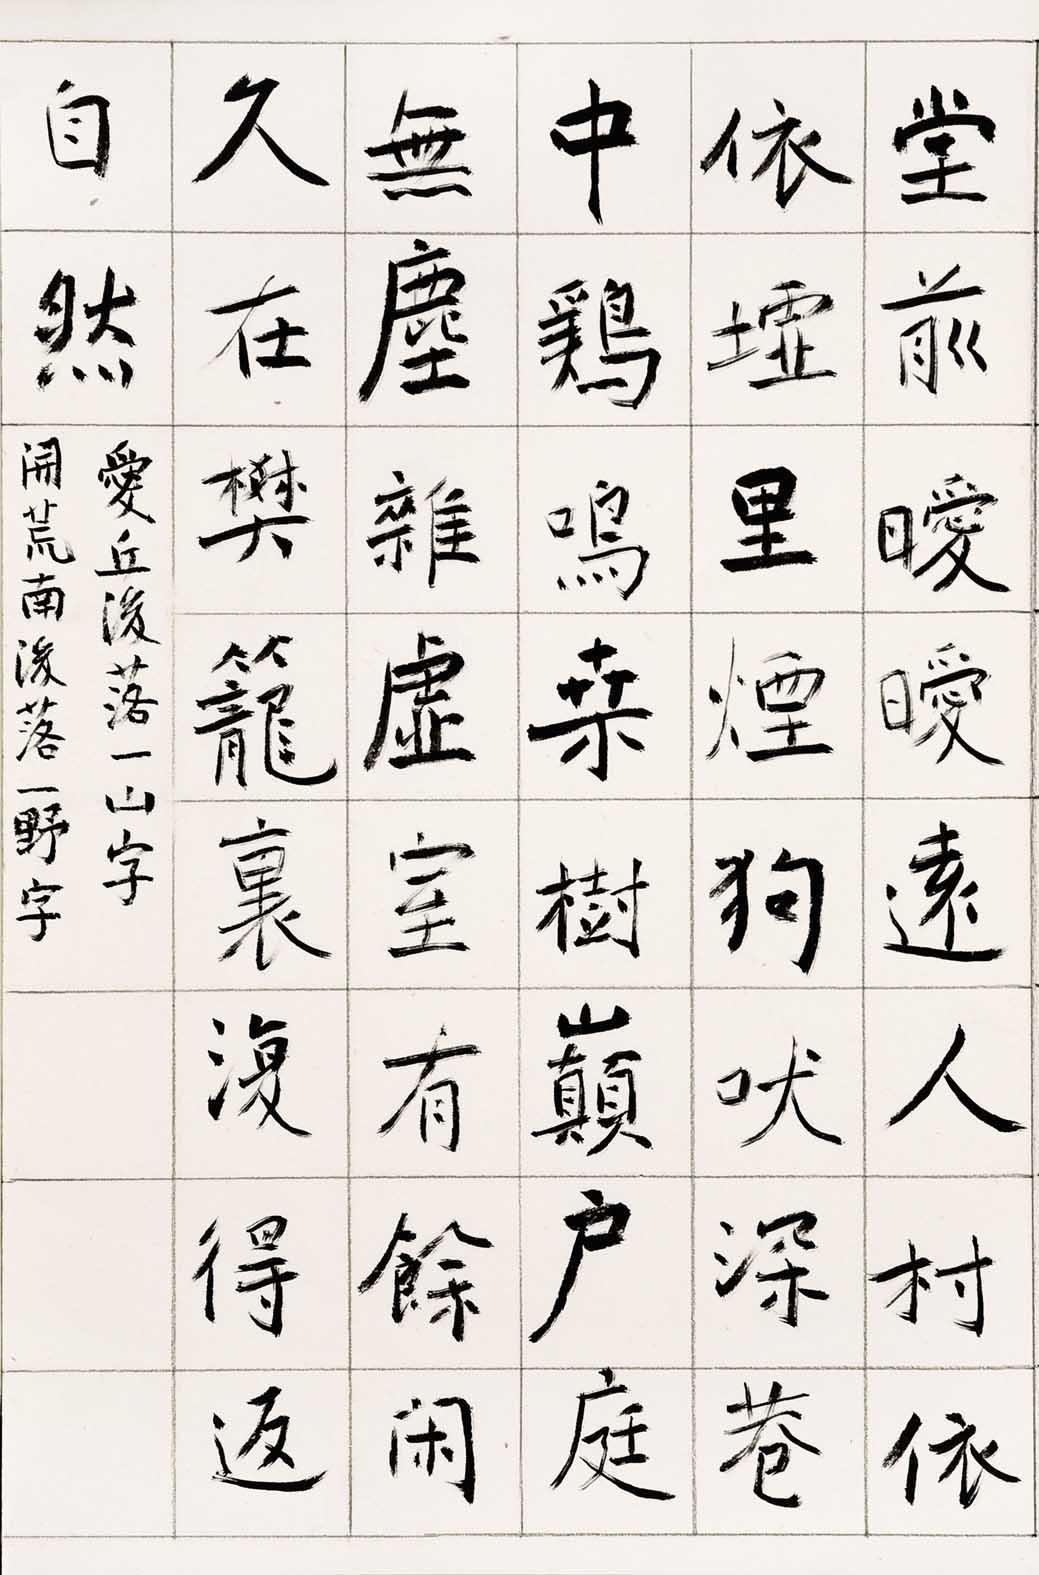 堂前曖曖遠人村依
依墟里煙狗吠深巷
中鷄鳴桒樹巔户庭
無塵雜虛室有餘闲
久在樊籠裏復得返
自然
愛丘後落一山字
開荒南後落一野字